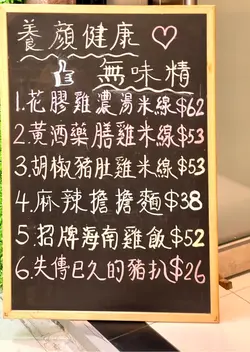 養顏健康♡
無味精
1.花膠雞濃湯米線$62
2.黃酒藥膳雞米線$53
3.胡椒豬肚雞米線$53
4.麻辣擔擔麵$38
5.招牌海南雞飯$52
6.失傳已久的豬扒$26